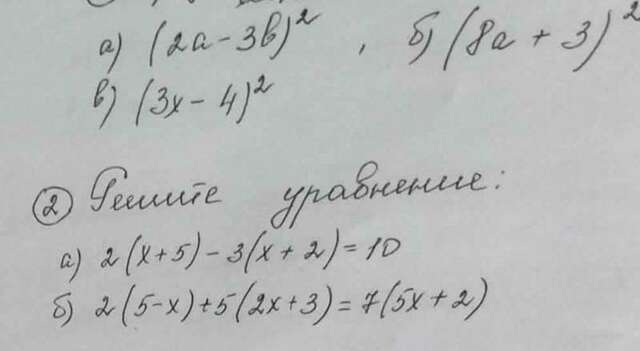 а) (2a-3b)² , б) (8a+3)²
в) (3x-4)²
② Решите уравнение:
а) 2(x+5)-3(x+2)=10
б) 2(5-x)+5(2x+3)=7(5x+2)